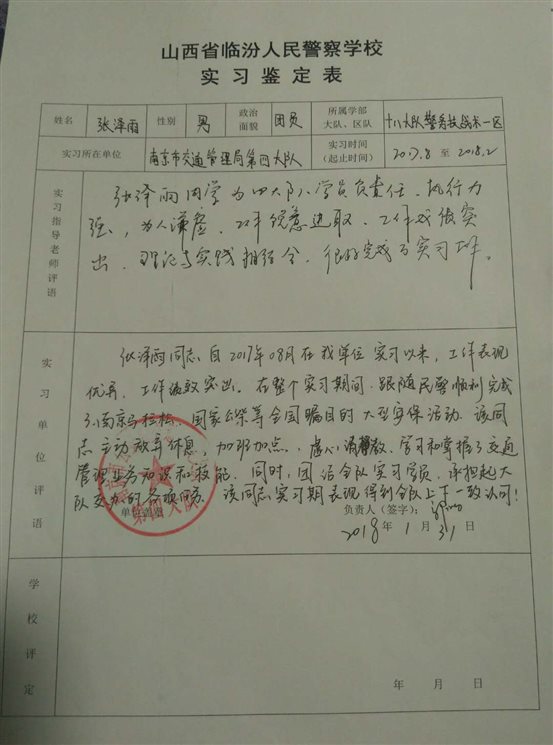 山西省临汾人民警察学校
实习鉴定表
姓名 张泽雨 性别 男 政治面貌 团员 所属学部大队、区队 十八大队警务技战术一区
实习所在单位 南京市交通管理局第四大队 实习时间（起止时间） 2017.8 至 2018.2
实习指导老师评语
张泽雨同学为四大队小学员负责任、执行力
强，为人谦虚、工作锐意进取、工作成绩突
出、理论与实践相结合、很好完成了实习工作。
实习单位评语
张泽雨同志自2017年08月在我单位实习以来，工作表现
优异，工作成效突出。在整个实习期间，跟随民警顺利完成
了南京马拉松、国家公祭等全国瞩目的大型安保活动。该同
志主动放弃休息，加班加点，虚心请教，学习和掌握了交通
管理业务知识和技能。同时，团结全队实习学员，承担起大
队交办的各项任务。该同志实习期表现得到全队上下一致认可！
单位盖章 负责人（签字）：
第四大队
2018年1月31
学校评定
年 月 日